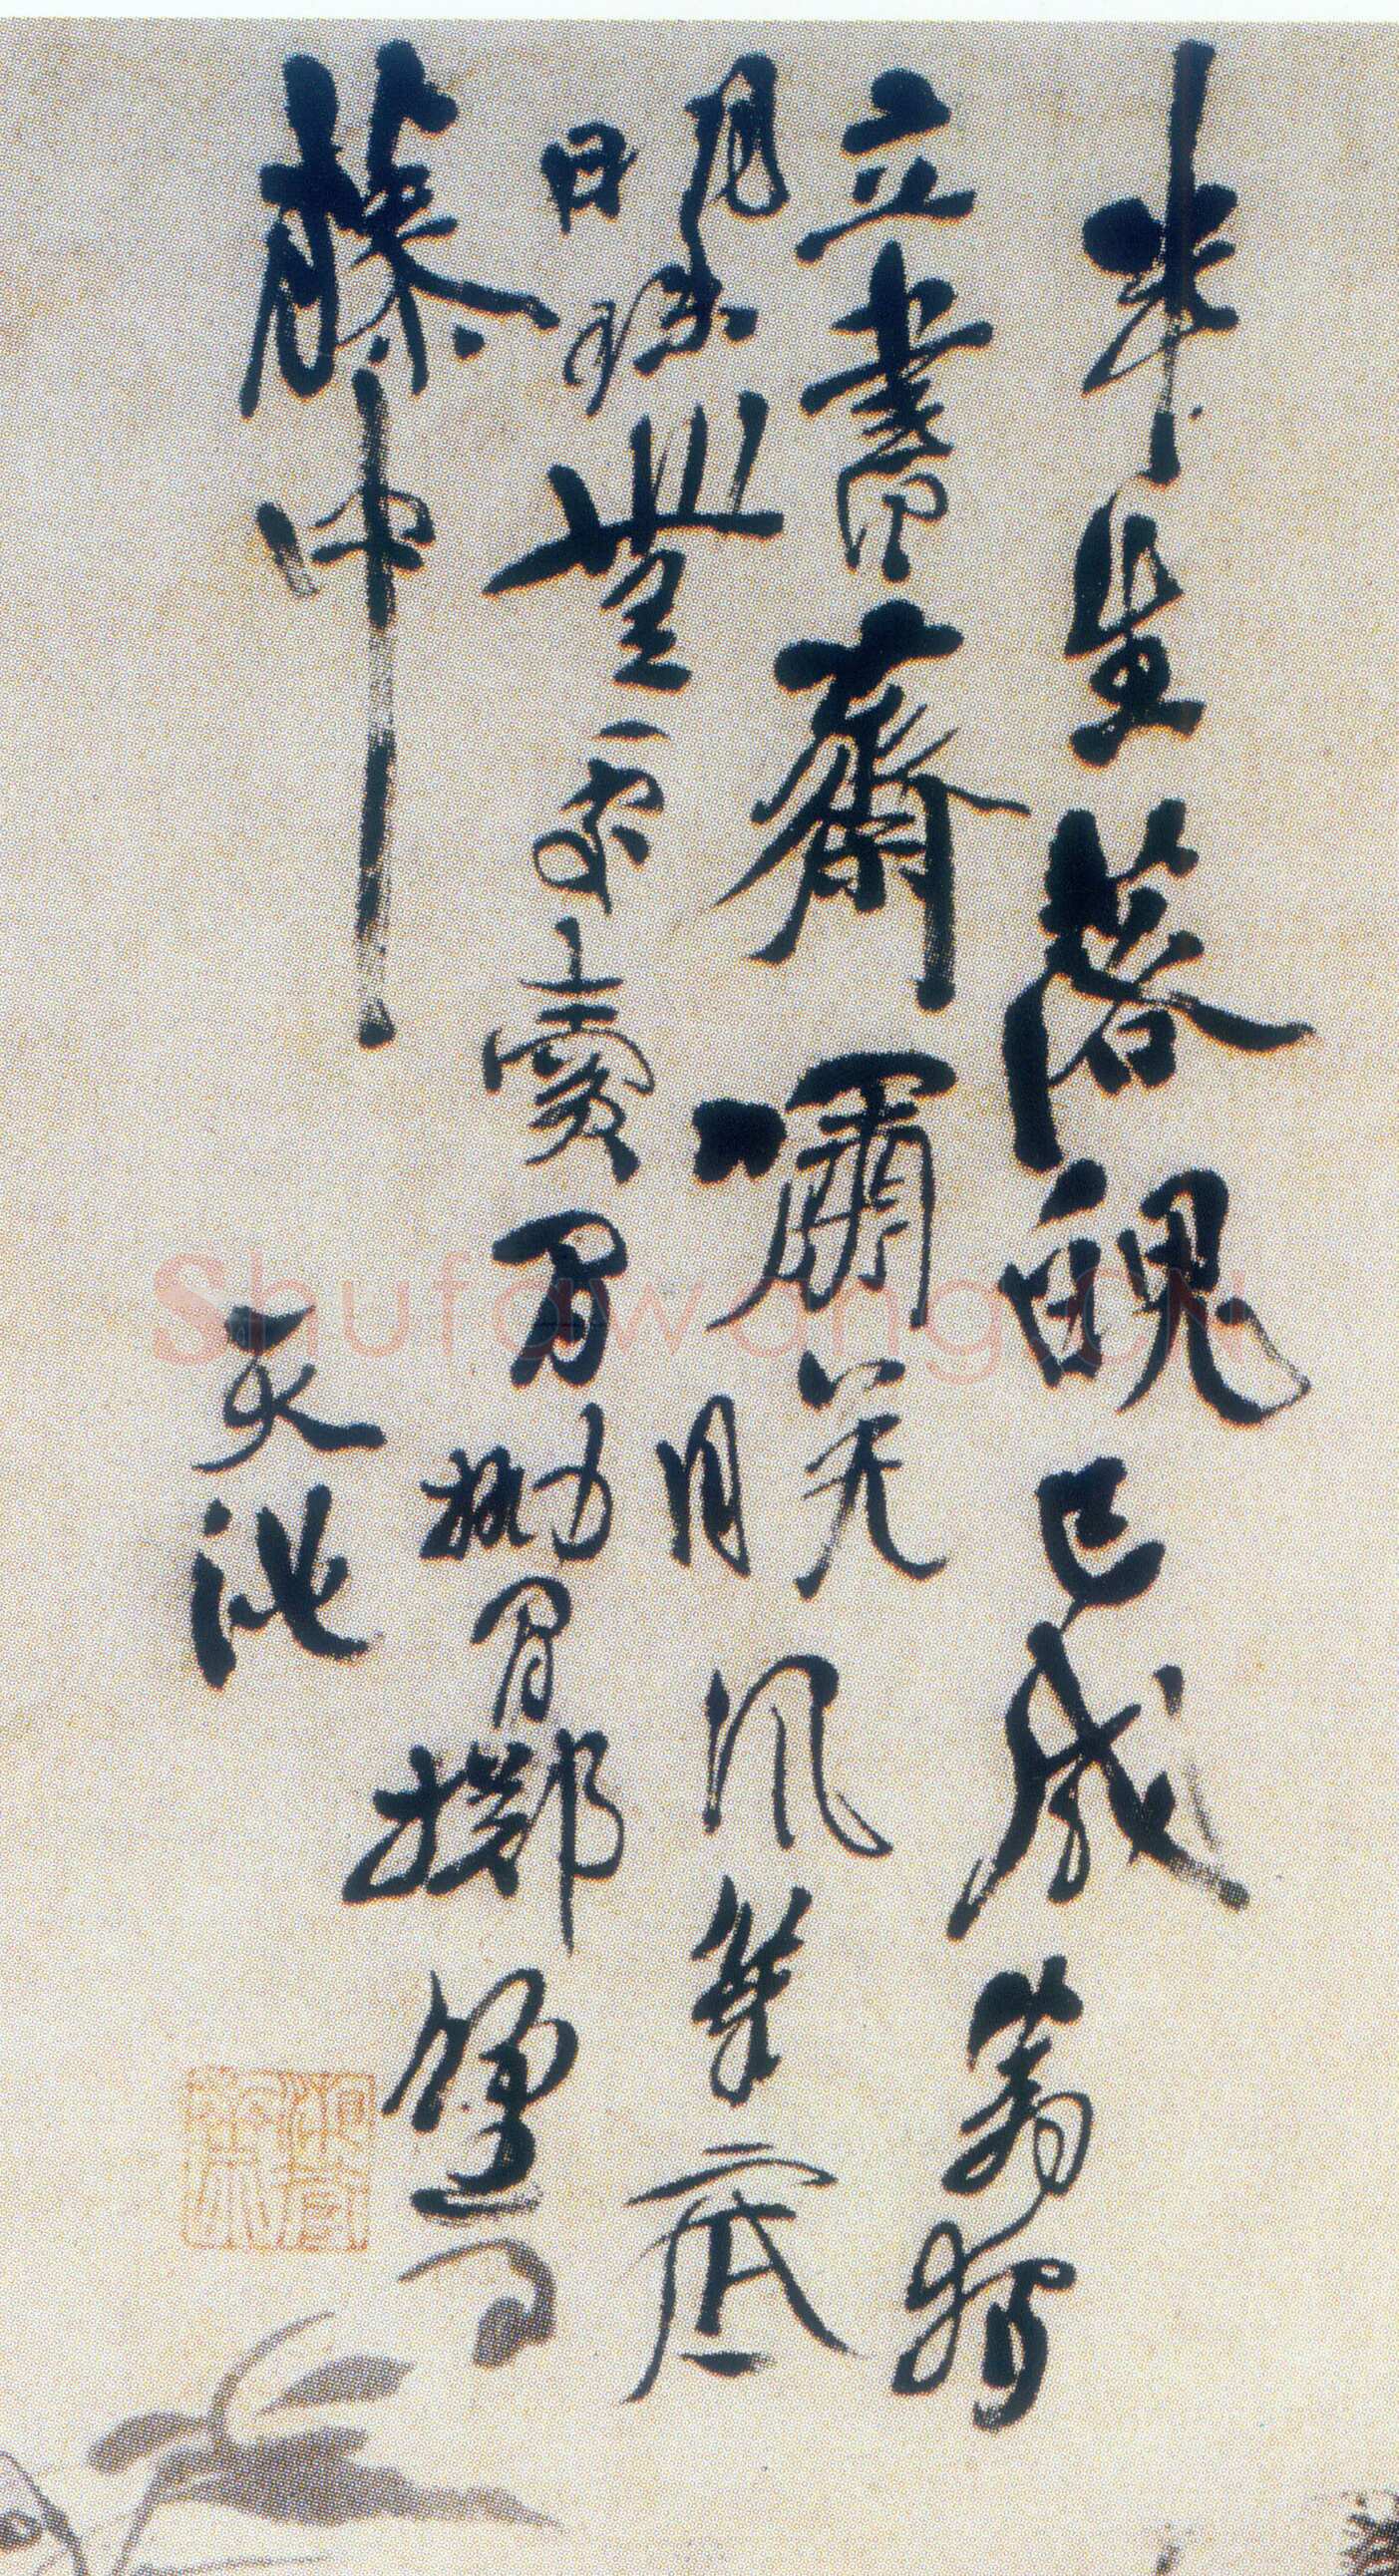 半生落魄已成翁獨
立書齋嘯晚風筆底
明珠無處賣閒拋閒擲野
藤中
天池
Shufawang.CN